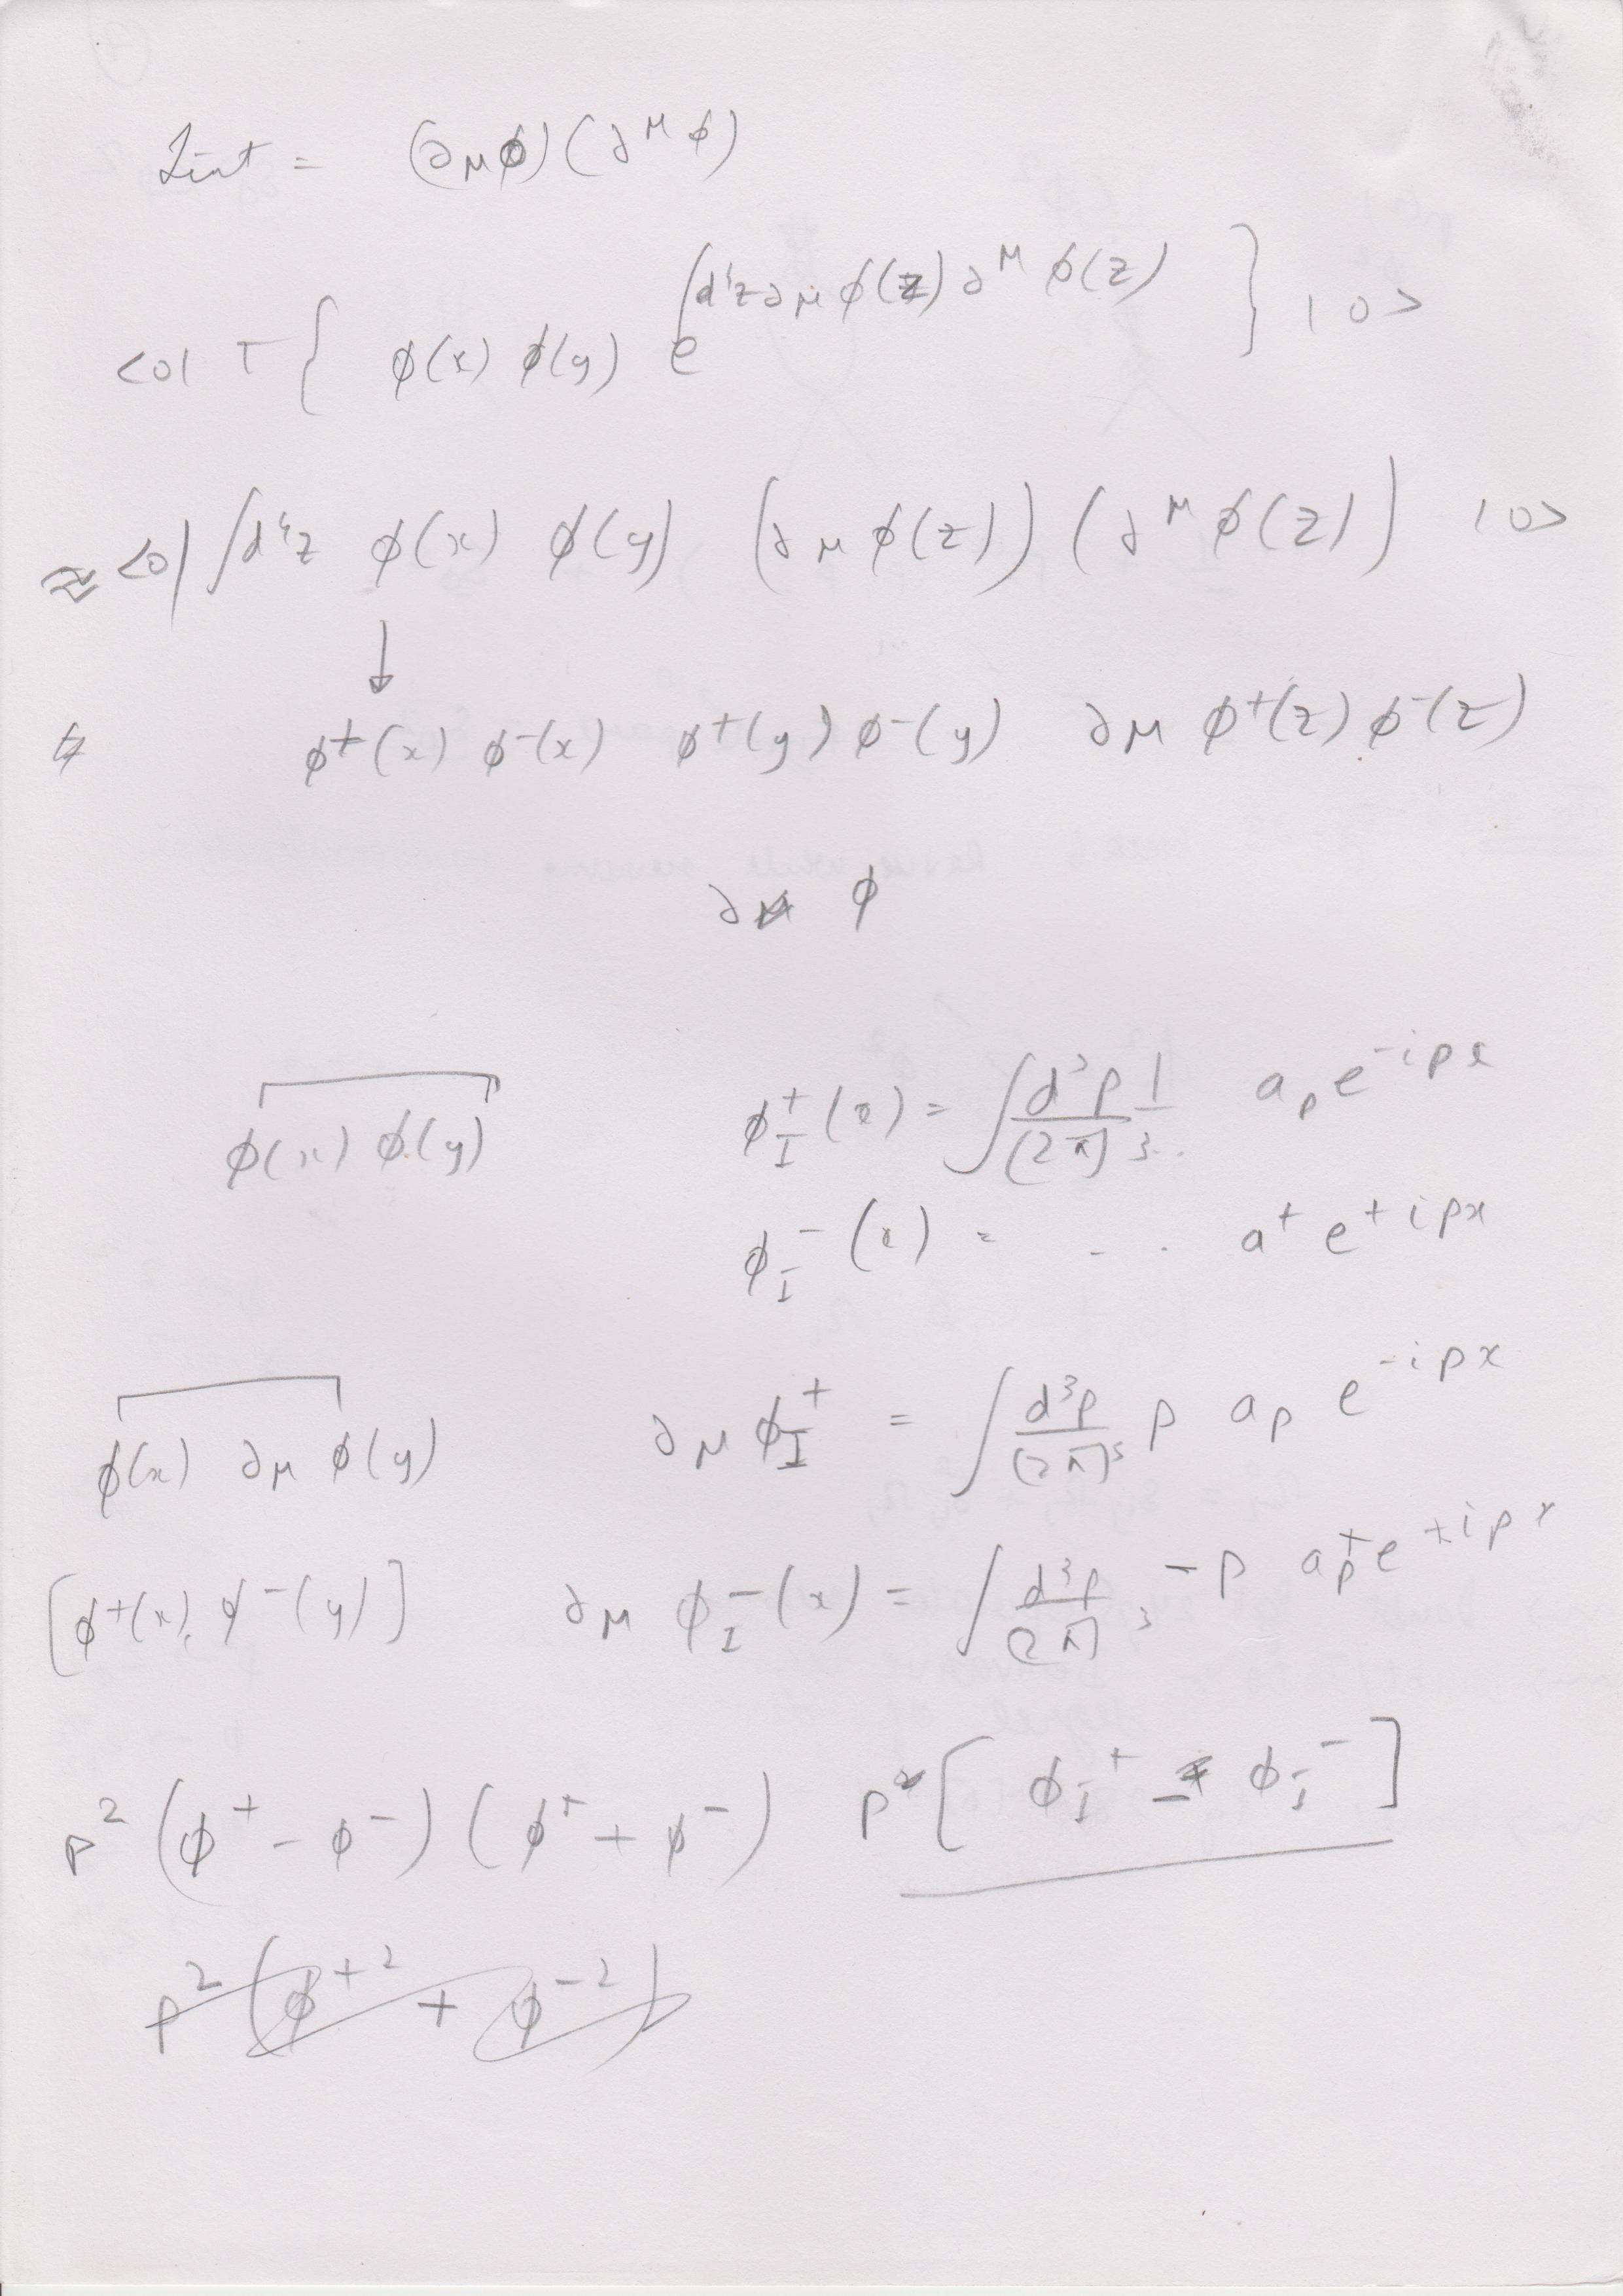 Lint = (∂μϕ)(∂^μ ϕ)
<0| T { ϕ(x) ϕ(y) e^{∫d⁴z ∂μ ϕ(z) ∂^μ ϕ(z)} } |0>
≈ <0| ∫d⁴z ϕ(x) ϕ(y) (∂μ ϕ(z)) (∂^μ ϕ(z)) |0>
↓
ϕ⁺(x) ϕ⁻(x) ϕ⁺(y) ϕ⁻(y) ∂μ ϕ⁺(z) ϕ⁻(z)
∂μ ϕ
ϕ(x) ϕ(y)
ϕ_I⁺(x) = ∫ d³p/(2π)³ 1 a_p e^{-ipx}
ϕ_I⁻(x) = - . a⁺ e^{+ipx}
ϕ(x) ∂μ ϕ(y)
∂μ ϕ_I⁺ = ∫ d³p/(2π)³ p a_p e^{-ipx}
[ϕ⁺(x), ϕ⁻(y)]
∂μ ϕ_I⁻(x) = ∫ d³p/(2π)³ -p a_p⁺ e^{+ipx}
p² (ϕ⁺ - ϕ⁻) (ϕ⁺ + ϕ⁻)
p [ϕ_I⁺ - ϕ_I⁻]
p² (ϕ⁺² + ϕ⁻²)